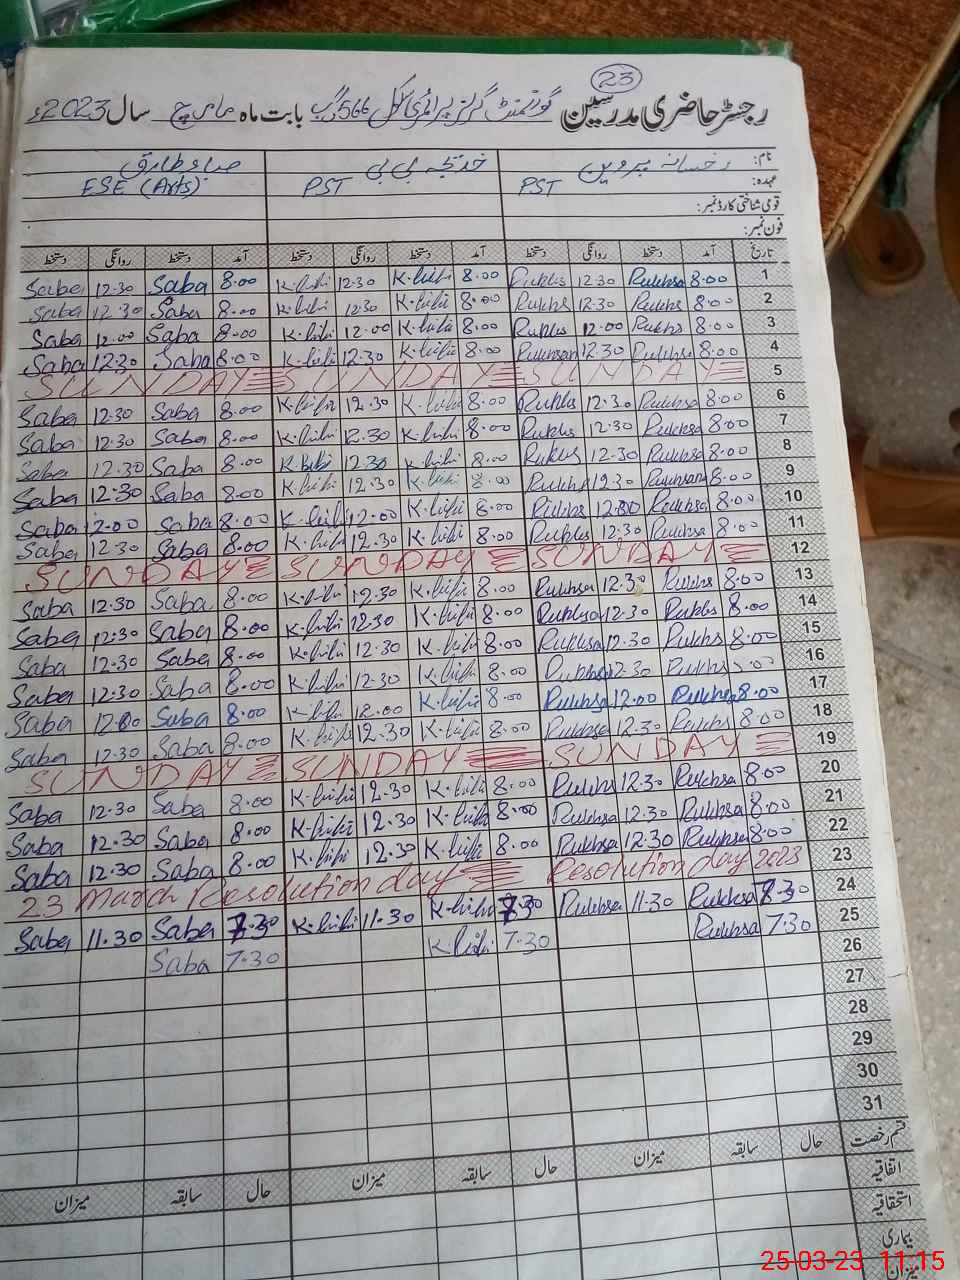 23
رجسٹر حاضری مدرسین گورنمنٹ گرلز پرائمری سکول 566 گ ب بابت ماہ مارچ سال 2023ء
نام: رخسانہ پروین خدیجہ بی بی صباء طارق
عہدہ: PST PST ESE (Arts)
قومی شناختی کارڈ نمبر:
فون نمبر:
تاریخ آمد دستخط روانگی دستخط آمد دستخط روانگی دستخط آمد دستخط روانگی دستخط
1 8.00 Rukhsa 12.30 Rukhs 8.00 K.bibi 12.30 K.bibi 8.00 Saba 12.30 Saba
2 8.00 Rukhs 12.30 Rukhs 8.00 K.bibi 12.30 K.bibi 8.00 Saba 12.30 Saba
3 8.00 Rukhs 12.00 Rukhs 8.00 K.bibi 12.00 K.bibi 8.00 Saba 12.00 Saba
4 8.00 Rukhsa 12.30 Rukhsan 8.00 K.bibi 12.30 K.bibi 8.00 Saba 12.30 Saba
5 SUNDAY SUNDAY SUNDAY
6 8.00 Rukhsa 12.30 Rukhs 8.00 K.bibi 12.30 K.bibi 8.00 Saba 12.30 Saba
7 8.00 Rukhsa 12.30 Rukhs 8.00 K.bibi 12.30 K.bibi 8.00 Saba 12.30 Saba
8 8.00 Rukhsa 12.30 Rukhs 8.00 K.bibi 12.30 K.bibi 8.00 Saba 12.30 Saba
9 8.00 Rukhsana 12.30 Rukhs 8.00 K.bibi 12.30 K.bibi 8.00 Saba 12.30 Saba
10 8.00 Rukhsa 12.00 Rukhs 8.00 K.bibi 12.00 K.bibi 8.00 Saba 12.00 Saba
11 8.00 Rukhsa 12.30 Rukhs 8.00 K.bibi 12.30 K.bibi 8.00 Saba 12.30 Saba
12 SUNDAY SUNDAY SUNDAY
13 8.00 Rukhs 12.30 Rukhsa 8.00 K.bibi 12.30 K.bibi 8.00 Saba 12.30 Saba
14 8.00 Rukhs 12.30 Rukhsa 8.00 K.bibi 12.30 K.bibi 8.00 Saba 12.30 Saba
15 8.00 Rukhs 12.30 Rukhsa 8.00 K.bibi 12.30 K.bibi 8.00 Saba 12.30 Saba
16 8.00 Rukhs 12.30 Rukhsa 8.00 K.bibi 12.30 K.bibi 8.00 Saba 12.30 Saba
17 8.00 Rukhsa 12.00 Rukhsa 8.00 K.bibi 12.00 K.bibi 8.00 Saba 12.00 Saba
18 8.00 Rukhs 12.30 Rukhsa 8.00 K.bibi 12.30 K.bibi 8.00 Saba 12.30 Saba
19 SUNDAY SUNDAY SUNDAY
20 8.00 Rukhsa 12.30 Rukhs 8.00 K.bibi 12.30 K.bibi 8.00 Saba 12.30 Saba
21 8.00 Rukhsa 12.30 Rukhsa 8.00 K.bibi 12.30 K.bibi 8.00 Saba 12.30 Saba
22 8.00 Rukhsa 12.30 Rukhsa 8.00 K.bibi 12.30 K.bibi 8.00 Saba 12.30 Saba
23 Resolution day 2023 23 March Resolution day
24 Rukhsa 11.30 Rukhsa 7.30 K.bibi 11.30 K.bibi 7.30 Saba 11.30 Saba
25 7.30 Rukhsa 7.30 K.bibi 7.30 Saba
26
27
28
29
30
31
قسم رخصت حال سابقہ میزان حال سابقہ میزان حال سابقہ میزان
اتفاقیہ
استحقاقیہ
بیماری
میزان
25-03-23 11:15